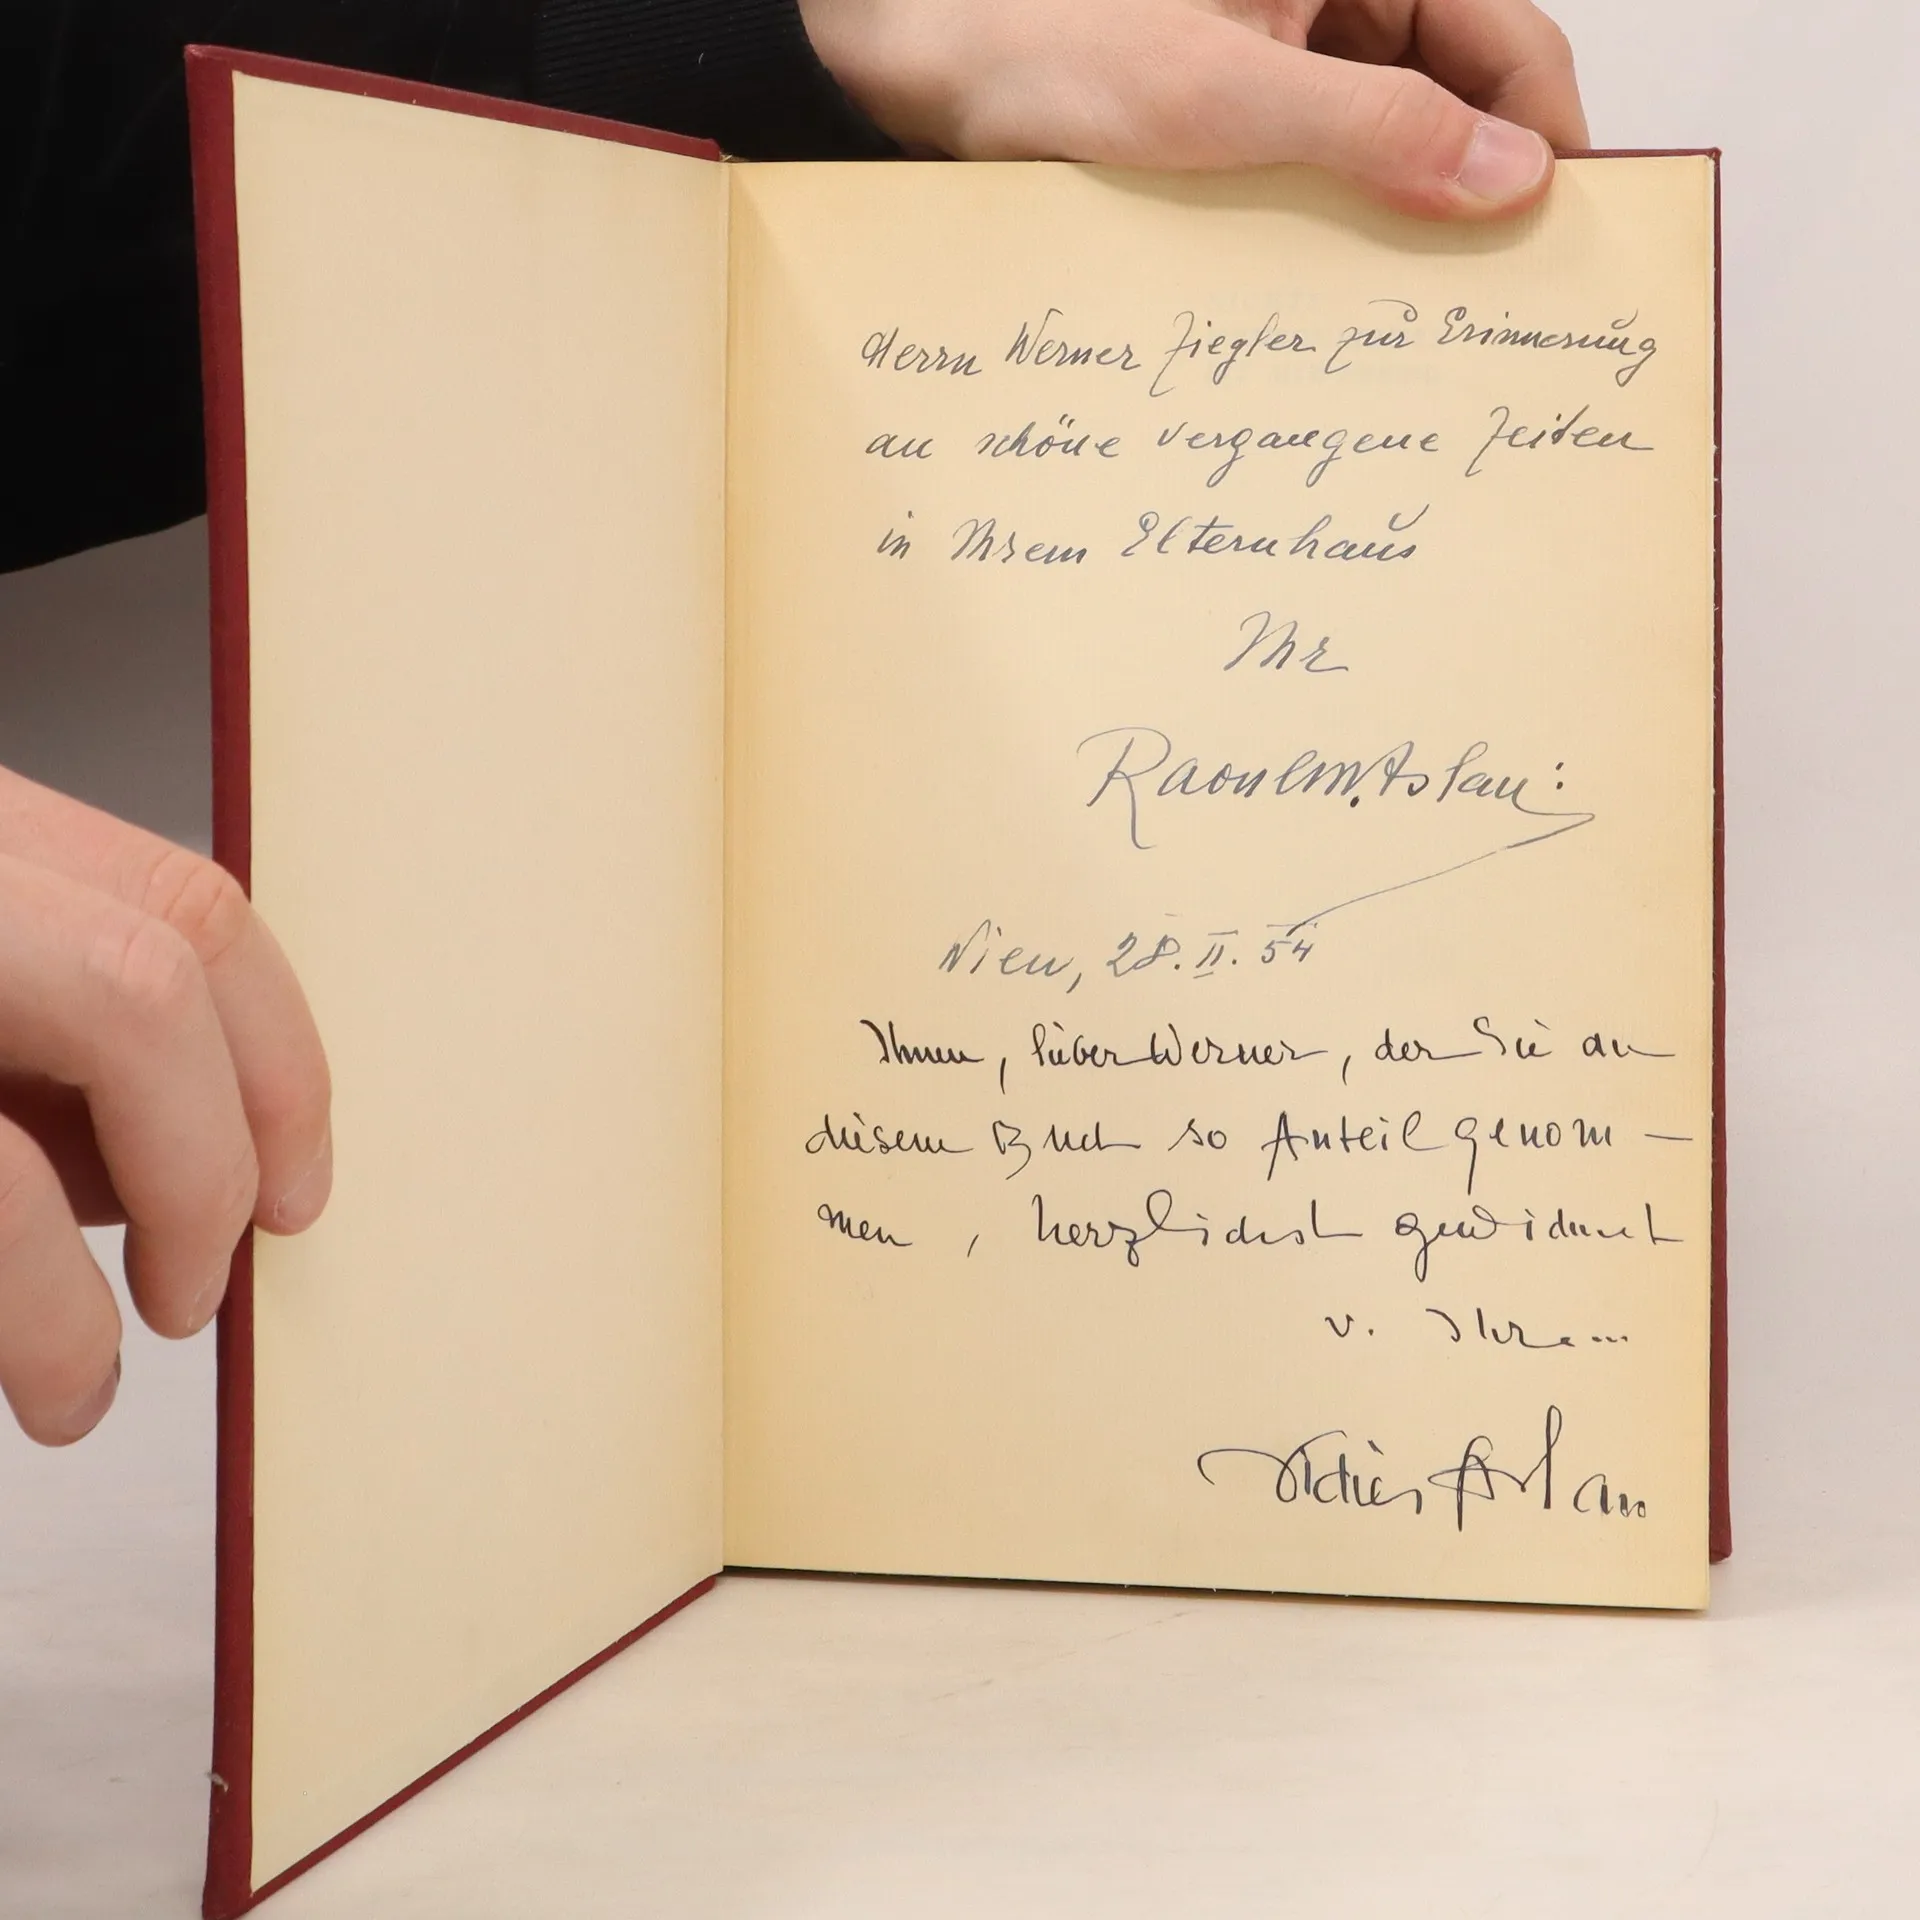 Herrn Werner Ziegler zur Erinnerung
an schöne vergangene Zeiten
in Ihrem Elternhaus
Ihr
Raoul M. Aslan:
Wien, 28. II. 54
Ihnen, lieber Werner, der Sie an
diesem Buch so Anteil genom -
men, herzlichst gewidmet
v. Ihrem
Aslan